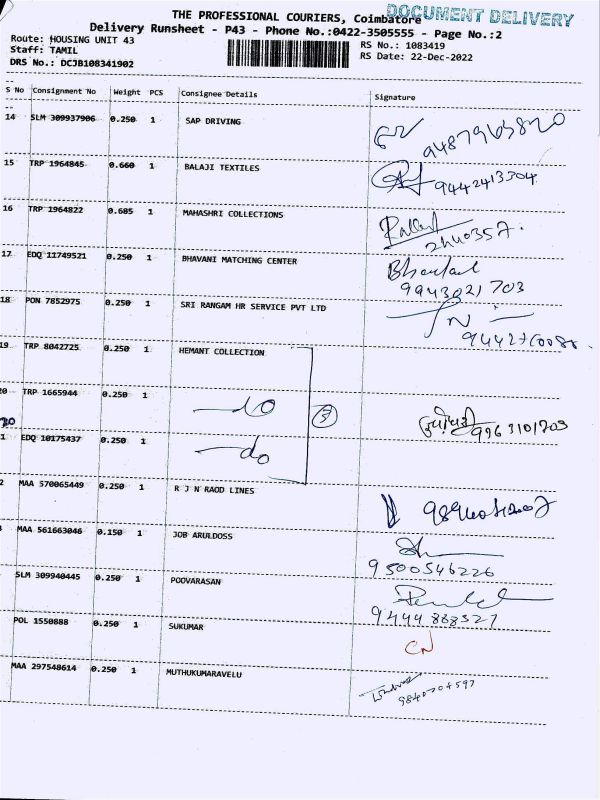 THE PROFESSIONAL COURIERS, Coimbatore
DOCUMENT DELIVERY
Delivery Runsheet - P43 - Phone No.:0422-3505555 - Page No.:2
Route: HOUSING UNIT 43
RS No.: 1083419
Staff: TAMIL
RS Date: 22-Dec-2022
DRS No.: DCJB108341902
S No Consignment No Weight PCS Consignee Details Signature
14 SLM 309937906 0.250 1 SAP DRIVING
9487963820
15 TRP 1964845 0.660 1 BALAJI TEXTILES
9442413304
16 TRP 1964822 0.685 1 MAHASHRI COLLECTIONS
2440357.
17 EDQ 11749521 0.250 1 BHAVANI MATCHING CENTER
9943021703
18 PON 7852975 0.250 1 SRI RANGAM HR SERVICE PVT LTD
19 TRP 8042725 0.250 1 HEMANT COLLECTION
20 TRP 1665944 0.250 1 do
3
9963101703
20
1 EDQ 10175437 0.250 1 do
2 MAA 570065449 0.250 1 R J N RAOD LINES
MAA 561663046 0.150 1 JOB ARULDOSS
9500546226
SLM 309940445 0.250 1 POOVARASAN
9444888327
POL 1550888 0.250 1 SUKUMAR
CN
MAA 297548614 0.250 1 MUTHUKUMARAVELU
9840704597